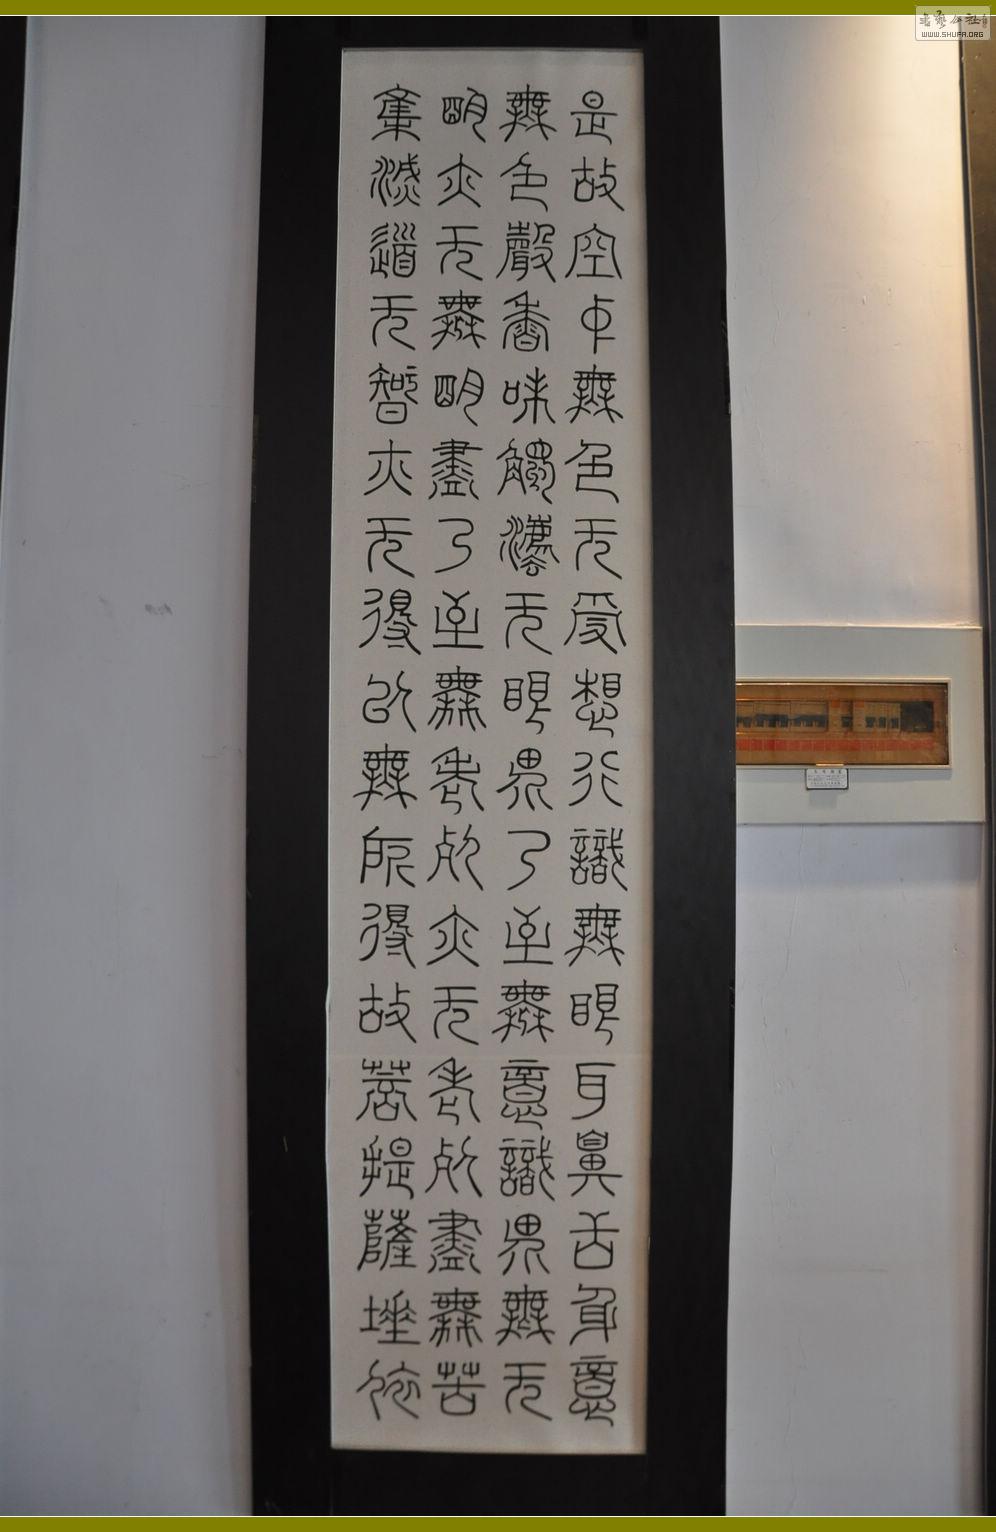 是故空中無色无受想行識無眼耳鼻舌身意
無色聲香味觸法无眼界乃至無意識界無无
明亦无無明盡乃至無老死亦无老死盡無苦
集滅道无智亦无得以無所得故菩提薩埵依
WWW.SHUFA.ORG